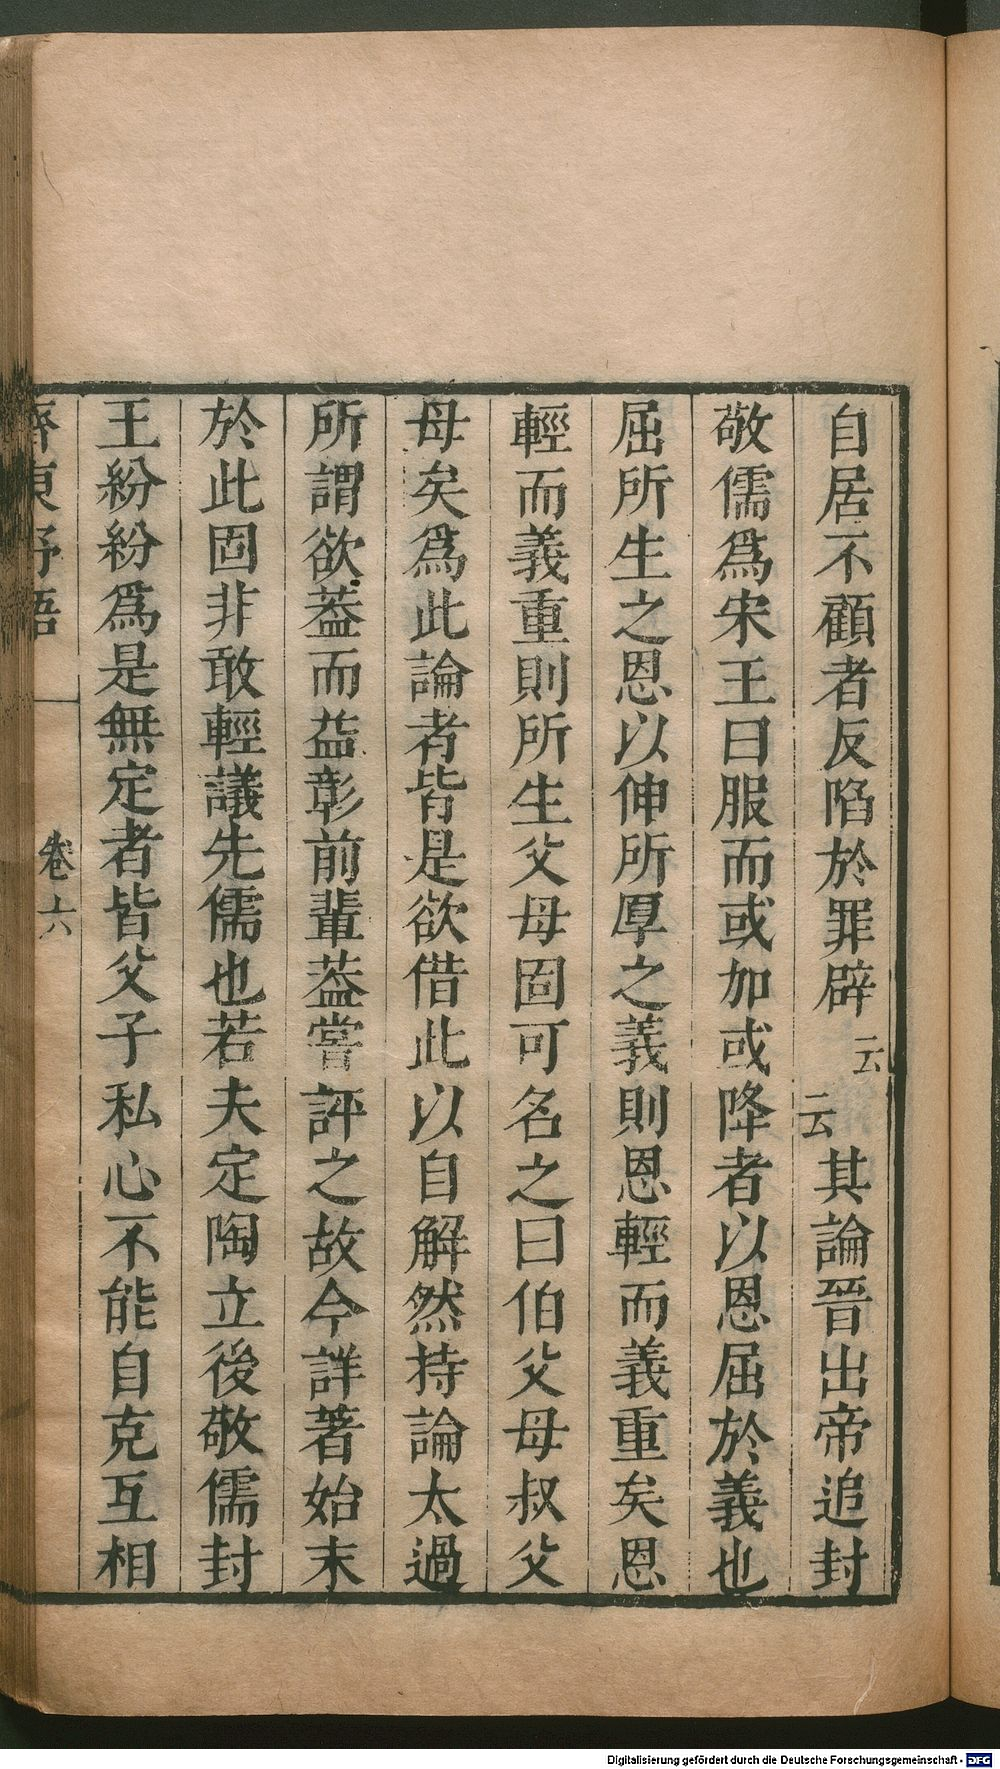 自居不顧者反陷於罪辟云云其論晉出帝追封
敬儒爲宋王曰服而或加或降者以恩屈於義也
屈所生之恩以伸所厚之義則恩輕而義重矣恩
輕而義重則所生父母固可名之曰伯父母叔父
母矣爲此論者皆是欲借此以自解然持論太過
所謂欲葢而益彰前輩葢嘗評之故今詳著始末
於此固非敢輕議先儒也若夫定陶立後敬儒封
王紛紛爲是無定者皆父子私心不能自克互相
齊東野語
卷六
Digitalisierung gefördert durch die Deutsche Forschungsgemeinschaft - DFG